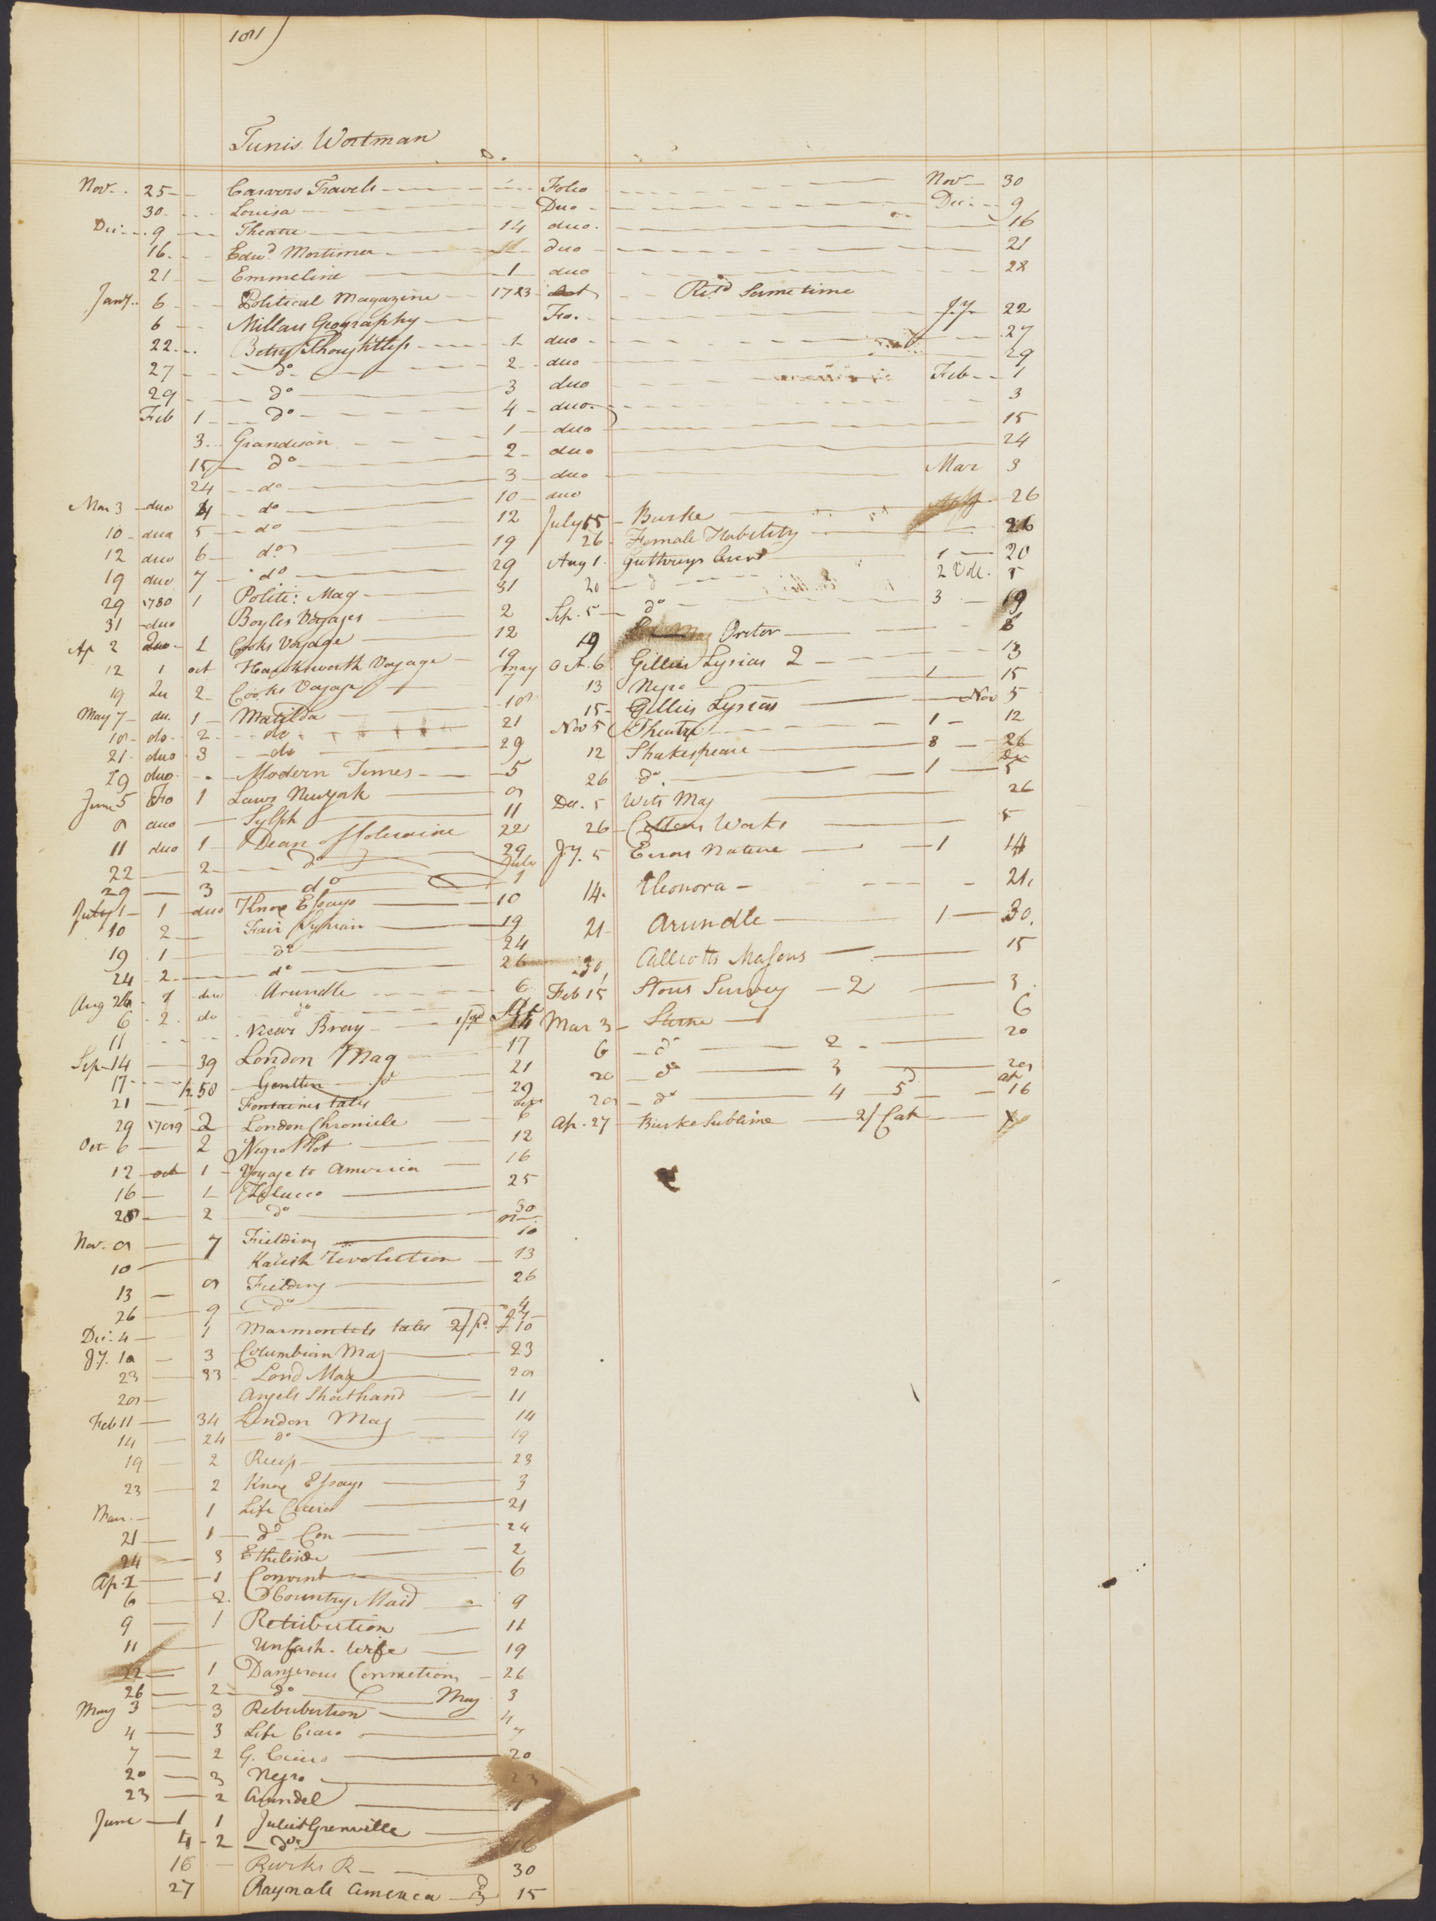 181
Tunis Wortman
Nov. 25 Carvers Travels Folio Nov 30
30 Louisa Duo Dec 9
Dec 9 Theatre 14 duo 16
16 Edwd Mortimer duo 21
21 Emmeline 1 duo 28
Jany 6 Political Magazine 1783 Retd Same time
6 Millars Geography Fo. Jy 22
22 Betsy Thoughtless 1 duo 27
27 do 2 duo 29
29 do 3 duo Feb 1
Feb 1 do 4 duo 3
3 Grandison 1 duo 15
15 do 2 duo 24
24 do 3 duo Mar 3
Mar 3 duo 4 do 10 duo
10 duo 5 do 12
12 duo 6 do 19
19 duo 7 do 29
29 1780 1 Politic: Mag 31
31 duo Boyles Voyages 2
Ap 2 duo 1 Cooks Voyage 12
12 1 oct Hawksworth Voyage 19
19 2 Cooks Voyage May 7
May 7 du. 1 Matilda 10
10 do 2 do 21
21 duo 3 do 29
29 duo Modern Times 5
June 5 Fo 1 Laws Newyork 8
8 duo Sylph 11
11 duo 1 Dean of Coleraine 22
22 2 do 29
29 3 do July 1
July 1 1 duo Knox Essays 10
10 2 Fair Syrian 19
19 1 do 24
24 2 do 26
Aug 26 1 duo Arundle 6
6 2 do do
11 Vicar Bray
Sep 14 39 London Mag 17
17 50 Gentln do 21
21 Fontaines tales 29
29 1789 2 London Chronicle 6
Oct 6 2 Negro Plot 12
12 oct 1 Voyage to America 16
16 1 25
28 2 do 30
Nov. 8 7 Fielding 10
10 Revolution 13
13 8 Fielding 26
26 9 do 4
Dec: 4 1 Marmontels tales 2/pd 10
Jy. 10 3 Columbian Mag 23
23 33 Lond Mag 28
28 Angels Shorthand 11
Feb 11 34 London Mag 14
14 24 do 19
19 2 23
23 2 Knox Essays 3
Mar. 1 Life Cicero 21
21 1 do Con 24
24 3 Ethelinde 2
Ap. 2 1 Convent 6
6 2 Country Maid 9
9 1 Retribution 11
11 Unfash. Wife 19
22 1 Dangerous Connections 26
26 2 do May 3
May 3 3 Retribution 4
4 3 Life Cicero 7
7 2 G. Cicero 20
20 3 Negro 23
23 2 Arundel 1
June 1 1 Juliet Grenville
4 2 do 16
16 R 30
27 Raynals America 3 15
July 15 Burke 26
26 Female Stability 26
Aug 1 Guthreys 1 20
20 do 2 Vol. 5
Sep. 5 do 3 19
19 Orator 6
Oct. 6 Gillies Lysias 2 13
13 Negro 1 15
15 Gillies Lysias Nov 5
Nov 5 Theatre 1 12
12 Shakespeare 8 26
26 do 1 5
Dec. 5 Wits Mag 26
26 Works 5
Jy. 5 Errors Nature 1 14
14 Eleonora 21
21 Arundle 1 30
30 Callcotts Masons 15
Feb 15 Stous Survey 2 3
Mar 3 Sterne 1 6
6 do 2 20
20 do 3 28
28 do 4 5 ap 16
Ap. 27 Burke Sublime 2/Cat